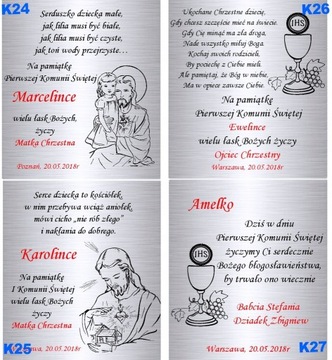 K24
Serduszko dziecka małe,
jak lilia musi być białe,
jak lilia musi być czyste,
jak toń wody przejrzyste...
Na pamiątkę
Pierwszej Komunii Świętej
Marcelince
wielu łask Bożych,
życzy
Matka Chrzestna
Poznań, 20.05.2018r
K26
Ukochane Chrzestne dziecię,
Gdy chcesz szczęście mieć na świecie.
Gdy Cię minąć ma zła droga,
Nade wszystko miłuj Boga
Kochaj swoich rodzicieli,
By pociechę z Ciebie mieli.
Ale pamiętaj, że Bóg w niebie,
Ma w opiece zawsze Ciebie.
IHS
Na pamiątkę
Pierwszej Komunii Świętej
Ewelince
wielu łask Bożych życzy
Ojciec Chrzestny
Warszawa, 20.05.2018r
Serce dziecka to kościółek,
w nim przebywa wciąż aniołek,
mówi cicho „nie rób złego"
i nakłania do dobrego.
Karolince
Na pamiątkę
I Komunii Świętej
wielu łask Bożych
życzy
Matka Chrzestna
K25
20.05.2018r
Amelko
Dziś w dniu
Pierwszej Komunii Świętej
życzymy Ci serdecznie
Bożego błogosławieństwa,
by trwało ono wiecznie
IHS
Babcia Stefania
Dziadek Zbigniew
Warszawa, 20.05.2018r
K27